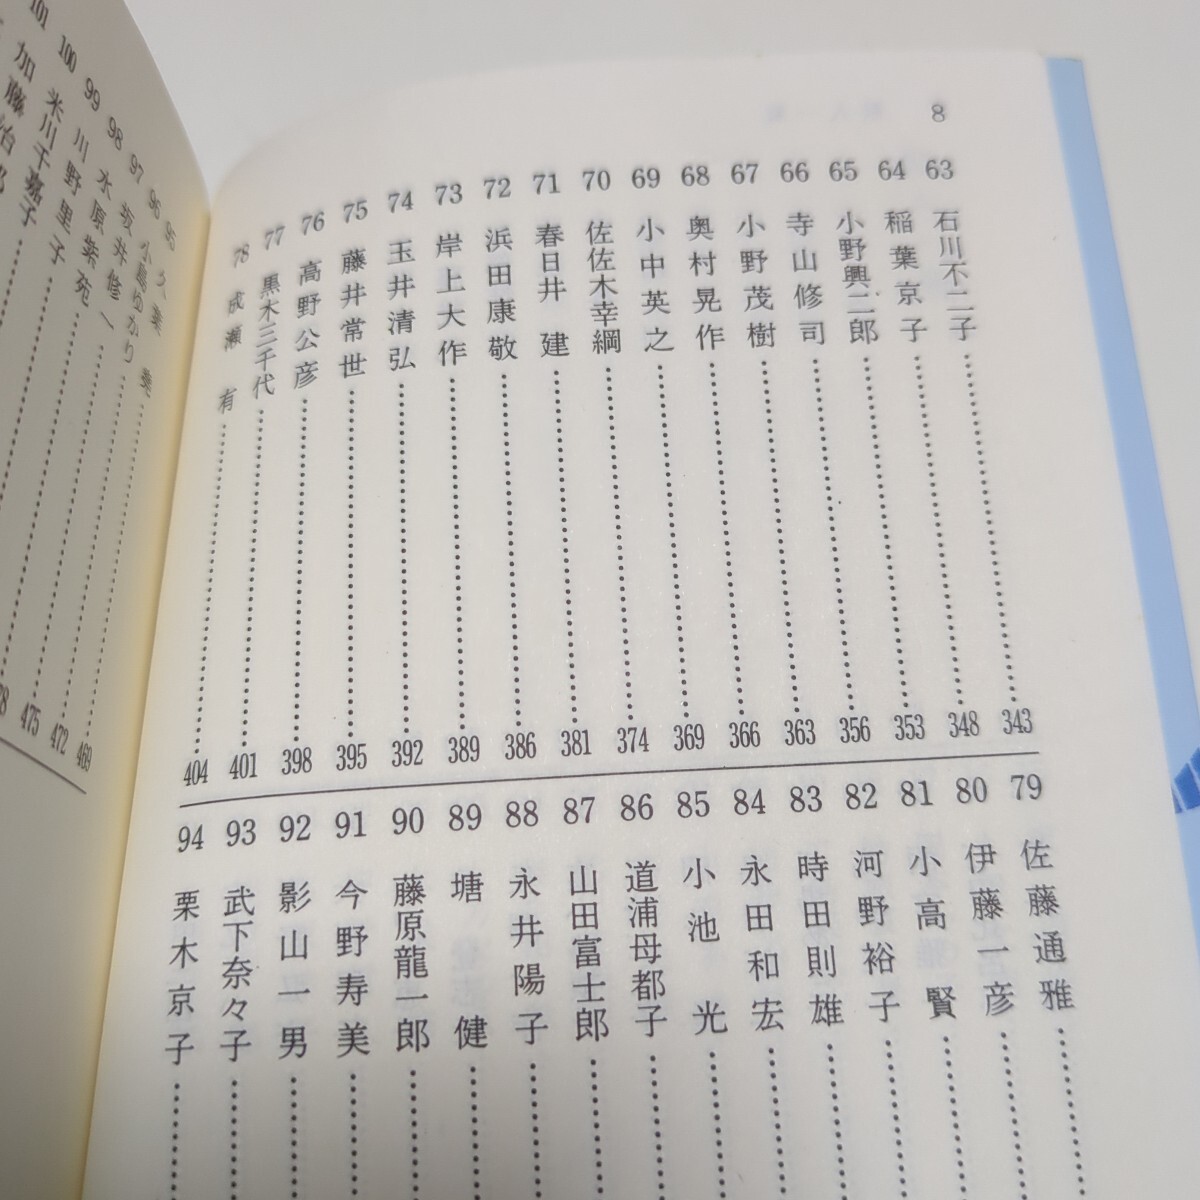 8
63 石川不二子 343
64 稲葉京子 348
65 小野興二郎 353
66 寺山修司 356
67 小野茂樹 363
68 奥村晃作 366
69 小中英之 369
70 佐佐木幸綱 374
71 春日井 建 381
72 浜田康敬 386
73 岸上大作 389
74 玉井清弘 392
75 藤井常世 395
76 高野公彦 398
77 黒木三千代 401
78 成瀬 有 404
79 佐藤通雅
80 伊藤一彦
81 小高 賢
82 河野裕子
83 時田則雄
84 永田和宏
85 小池 光
86 道浦母都子
87 山田富士郎
88 永井陽子
89 塘 健
90 藤原龍一郎
91 今野寿美
92 影山一男
93 武下奈々子
94 栗木京子
95
96 小島ゆかり
97 坂井修一
98 水原紫苑 469
99 川野里子 472
100 米川千嘉子 475
101 加藤治郎